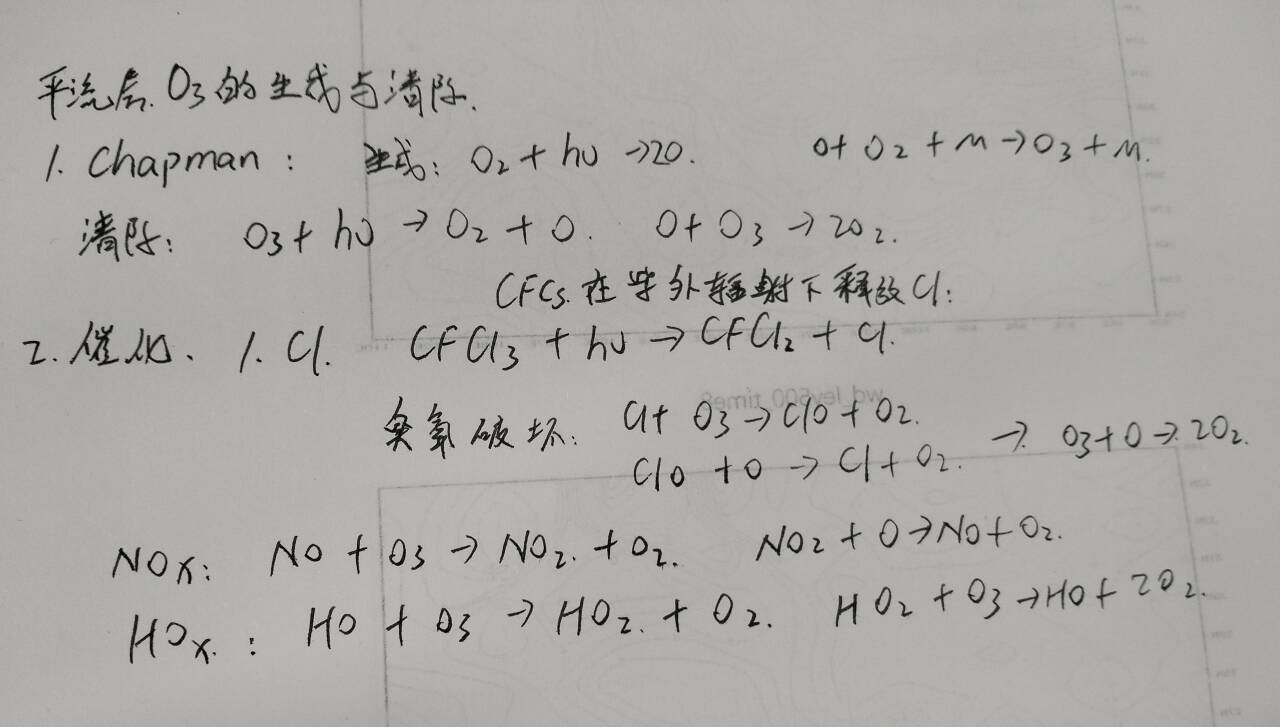 平流层.O₃的生成与清除.
1. Chapman: 生成: O₂ + hυ →2O. O+ O₂ + M→O₃ + M.
清除: O₃ + hυ → O₂ + O. O+ O₃ →2O₂.
CFCs.在紫外辐射下释放Cl:
2.催化、1. Cl. CFCl₃ + hυ → CFCl₂ + Cl.
臭氧破坏: Cl+ O₃ → ClO + O₂.
ClO + O → Cl + O₂. → O₃ + O → 2O₂.
NOx: NO + O₃ → NO₂. + O₂. NO₂ + O→NO+O₂.
HOx. : HO + O₃ → HO₂. + O₂. HO₂ + O₃ →HO+ 2O₂.